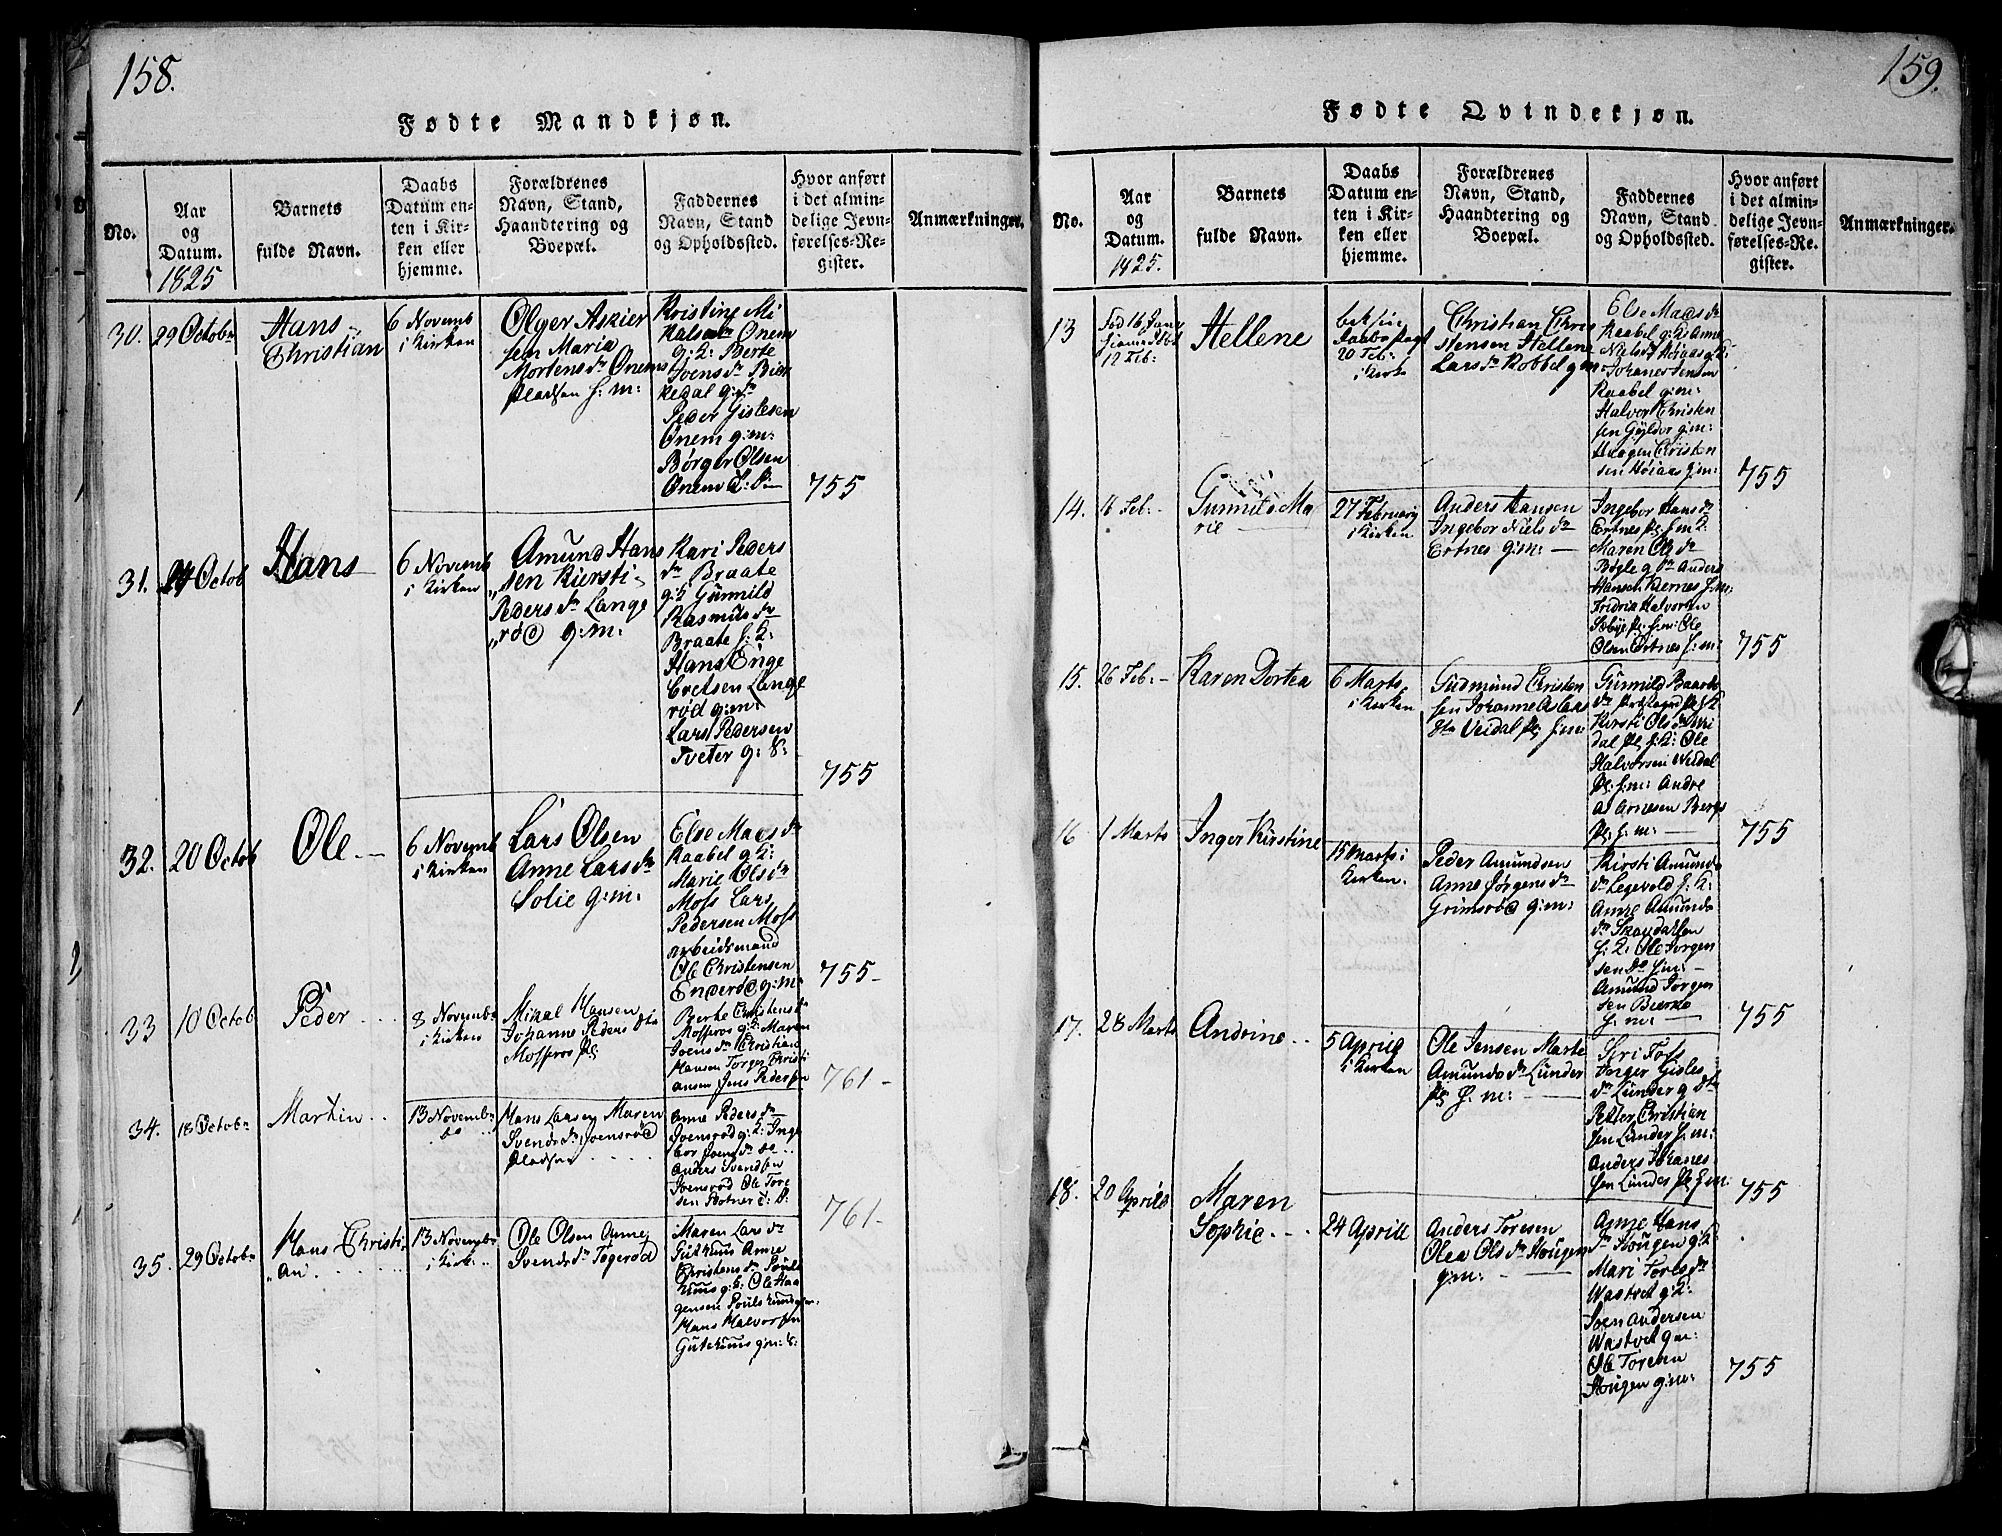 158.
Fødte Mandkjøn.
No.
Aar
og
Datum.
1825
Barnets
fulde Navn.
Daabs
Datum en-
ten i Kir-
ken eller
hjemme.
Forældrenes
Navn, Stand,
Haandtering og
Boepæl.
Faddernes
Navn, Stand
og Opholdssted.
Hvor anført
i det almin-
delige Jevn-
førelses-Re-
gister.
Anmærkninger.
30.
29 Octobr
Hans
Christian
6 Novemb
i Kirken
Olger Askier
sen Maria
Mortens dr Onems
Pladsen
Kristine Mi
Onem
g: k: Berte
Joens dr
kedal g:
Peder Gislesen
Onem g:m:
Børger Olsen
Onem
755
31.
24 Octob
Hans
6 Novemb
i Kirken
Amund Hans
„sen Kiersti
Peders dr Lange
„rød g:m:
Kari Peders
dr Braate
g: k Gunnild
Rasmus dr
Braate f: k:
Hans Enge
bretsen Lange
rød g:m:
Lars Pedersen
Tveter g: k:
755
32.
20 Octob
Ole.
6 Novemb
i Kirken
Lars Olsen
Anne Lars dr
Solie g:m:
Else Maas dr
Raabel g: k:
Marie Ols dr
Moss Lars
Pedersen Moss
arbeidsmand
Ole Christensen
Enderød g:m:
755-
33
10 Octob
Peder
8 Novembr
i Kirken
Mikal Hansen
Johanne Peders dtr
Mosseros pl
Berte Christens
Mosseros g: k: Maren
Joens dr Christian
Hansen Torger Christi
ansen Jens Pedersen
761-
34.
18 Octobr
Martin
13 Novembr
do
Hans Larsen Maren
Svends dr Joensrød
Pladsen
Anne Peders dr
Joensrød g: k: Inge
bor Joens dr do
Anders Svendsen
Joensrød Ole Tore
sen
761-
35.
29 Octobr
Hans Christi-
„an
13 Novembr
i Kirk
Ole Olsen Anne
Svends dr Togerød
Maren Lars dr
Guthuus Anne
Christens dr Pouls
huus g: k: Ole Haa
gensen Poulshuus g:m:
Hans Halvorsen
Guthuus g:m:
159.
Fødte Qvindekjøn.
No.
Aar
og
Datum.
1825.
Barnets
fulde Navn.
Daabs
Datum en-
ten i Kir-
ken eller
hjemme.
Forældrenes
Navn, Stand,
Haandtering og
Boepæl.
Faddernes
Navn, Stand
og Opholdssted.
Hvor anført
i det almin-
delige Jevn-
førelses-Re-
gister.
Anmærkninger.
13
Fød 16 Janr
hjemmedøbt
12 Feb:
Hellene
20 Feb:
i Kirke
Christian Chris
stensen Hellene
Lars dr Robbel g:m
Else Maas dr
Raabel g: k: Anne
Niels dr Høiaas g: k:
Johanes Jensen
Raabel g:m:
Halvor Christen
sen Gylder g:m:
Haagen Christen
sen Høiaas g:m:
755
14.
16 Feb:
Gunnild Ma
rie
27 February
i Kirken
Anders Hansen
Ingebor Niels dr
Ertnes g:m:
Ingebor Hans dr
Ertnes pl. f:m k:
Maren Ols dr
Bøgle g Anders
Hansen Kiernes f:m:
Fridrik Halvorsen
Sebye pl. f:m: Ole
Olsen Ertnes f:m:
755
15.
26 Feb:
Karen Dortea
6 Marts
i Kirken
Gudmund Christen
sen Johanne Aslas
dtr Veidal pl f:m:
Gunnild Baarts
dr
Kirsti Ols dr
dal pl f: k: Ole
Halvorsen Veidal
pl: f:m: Andre
as Arnesen Bergs
pl: f:m:
755
16
1 Marts
Inger Kirstine
15 Marts i
Kirken.
Peder Amundsen
Anne Jørgens dr
Grimsrød g:m:
Kirsti Amunds
dr Legevold f: k:
Anne Amunds
dr Skovdalsen
f: k: Ole Jorgen
sen do f:m:
Amund Jorgen
sen
f:m:
755
17.
28 Marts
Andrine
5 Aprill
i Kirken
Ole Jensen Marte
Amunds dr Lunder
pl f:m:
Siri
Torger Gisles
dr Lunder g
Petter Christian
sen Lunder f:m:
Anders Johanes
sen Lunder pl f:m:
755
18.
20 Aprill
Maren
Sophie
24 Aprill
Anders Toresen
Olea Ols dr Hougen
g:m:
Anne Hans
dr Hougen g: k:
Mari Tores dr
Wastvet g: k:
Joen Andersen
Wastvet g:m:
Ole Toresen
Hougen g:m:
755